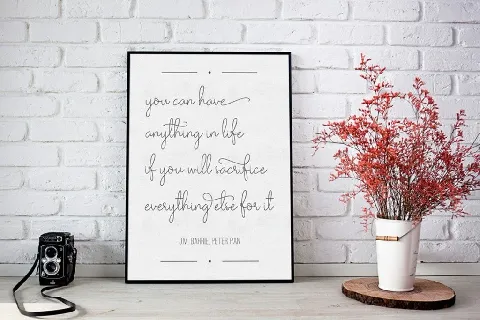 you can have
anything in life
if you will sacrifice
everything else for it
J.M. BARRIE, PETER PAN